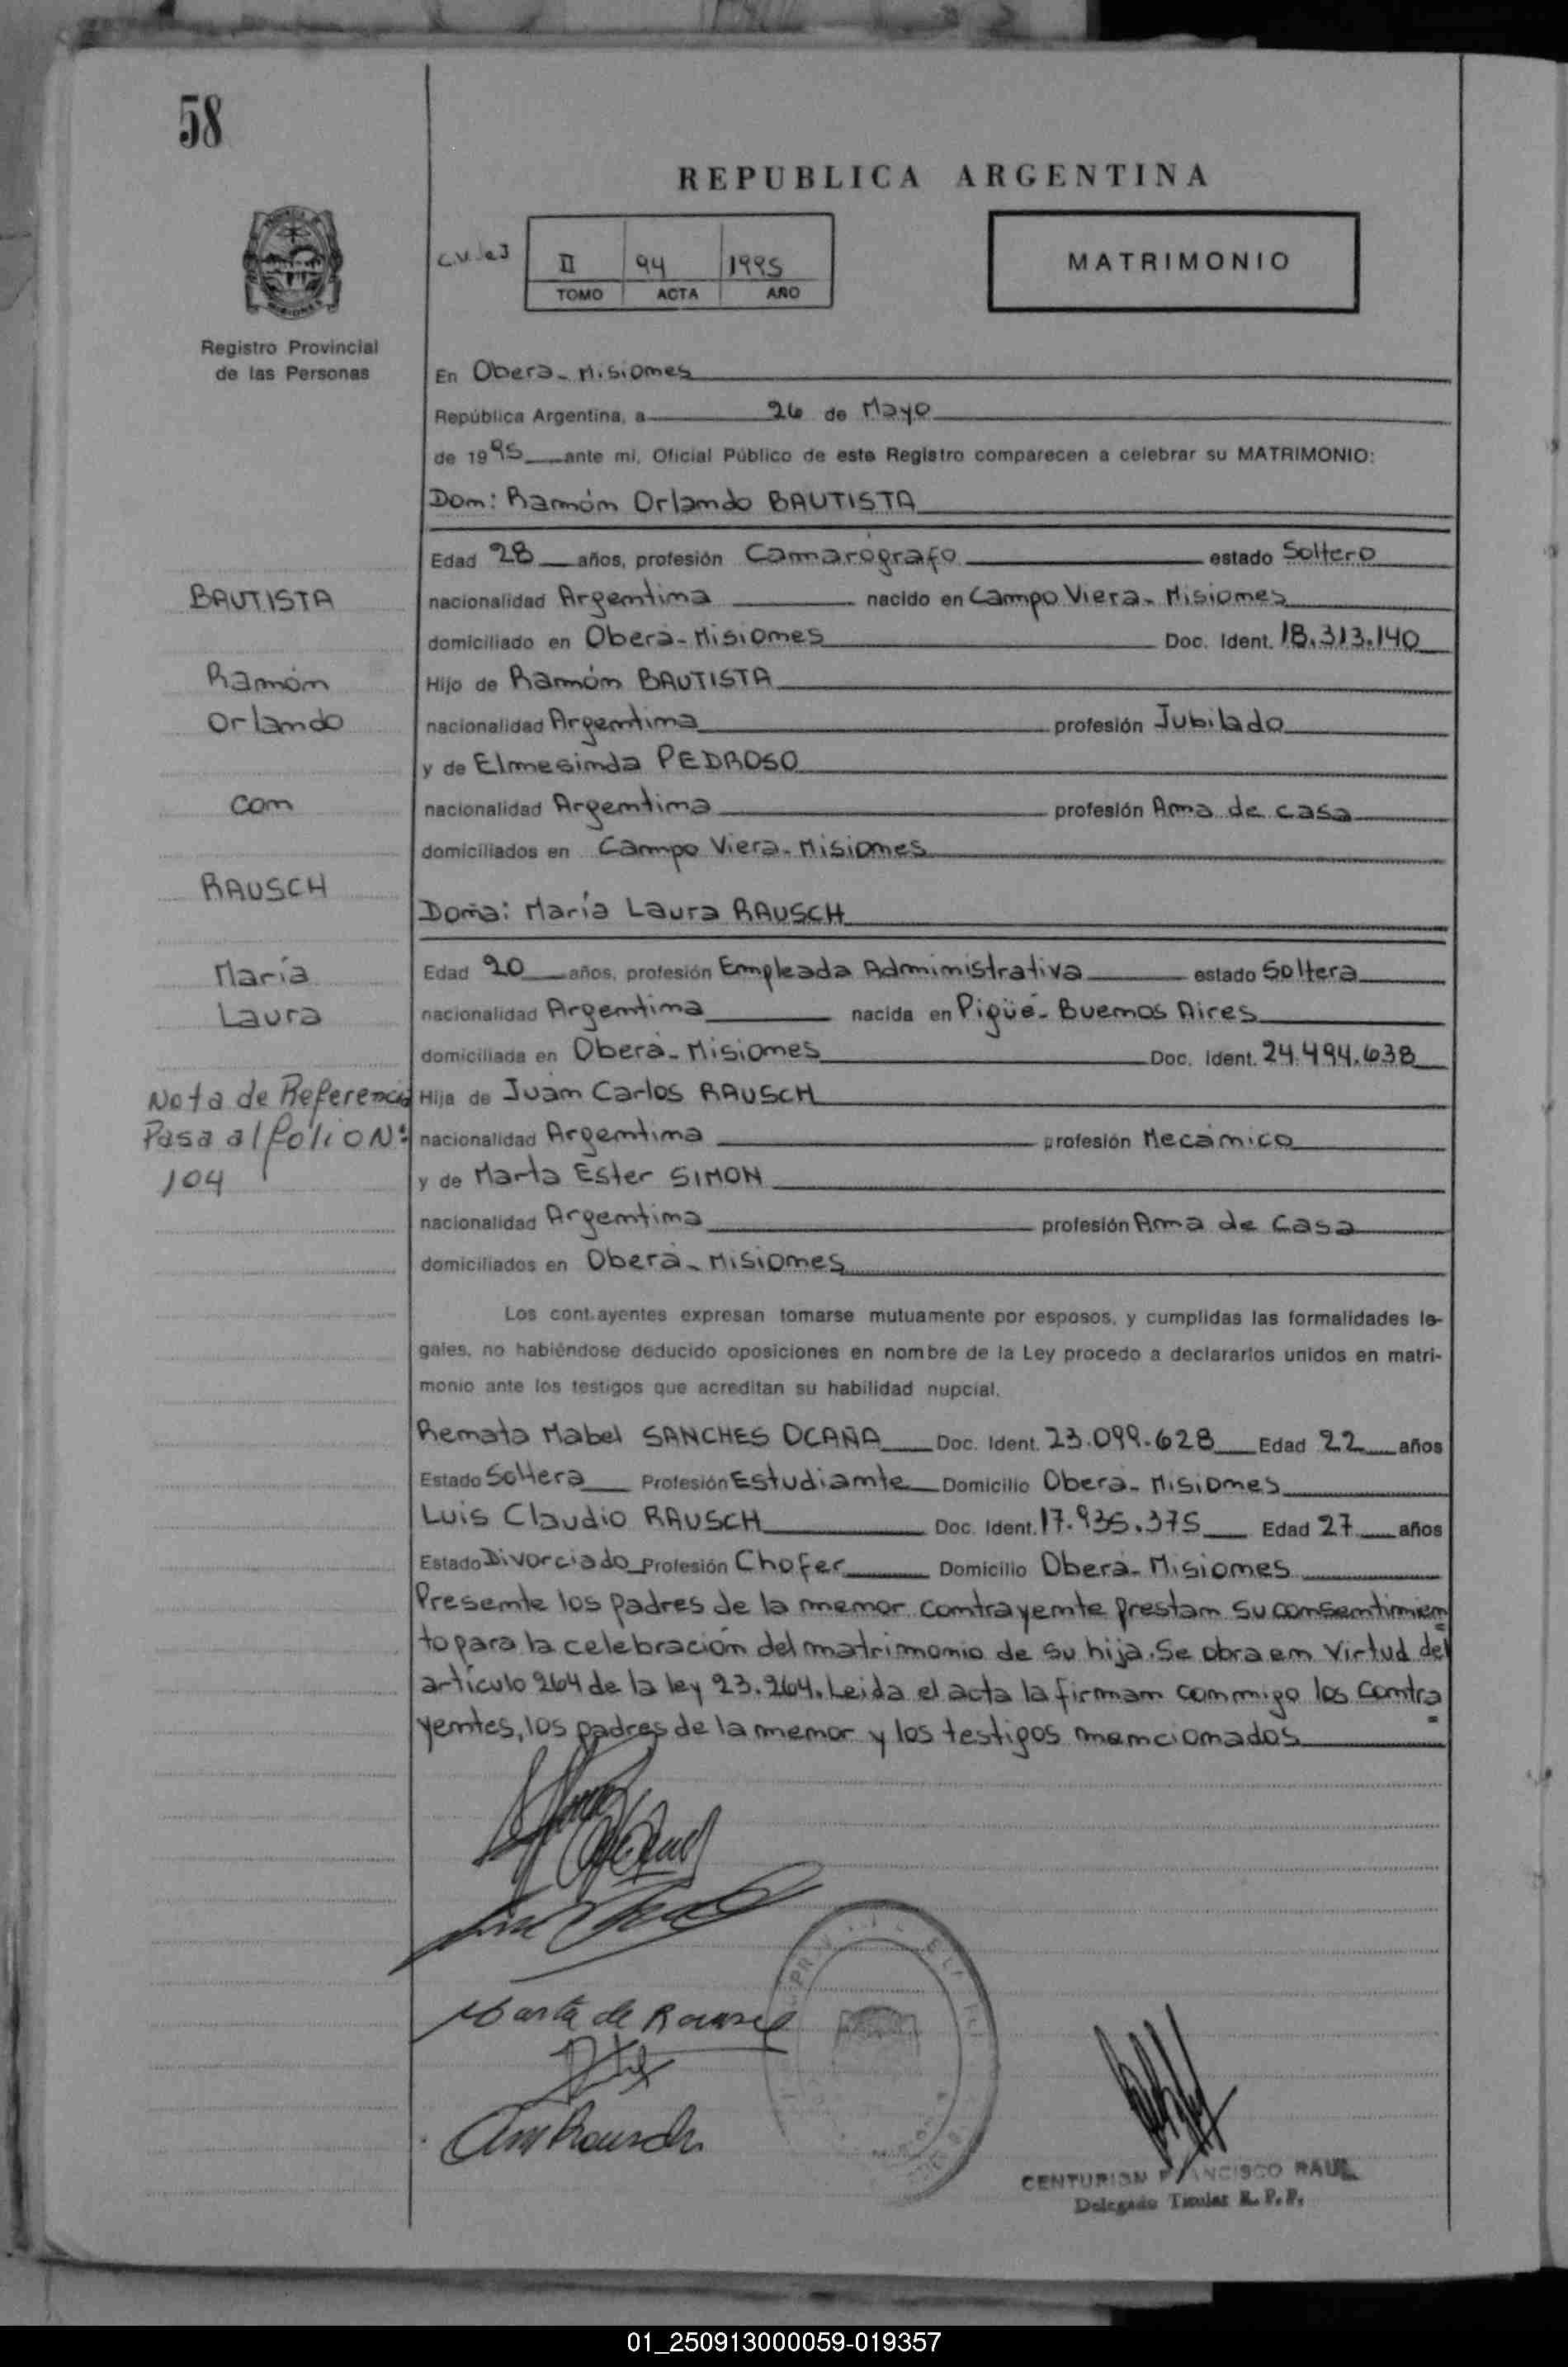 58
REPUBLICA ARGENTINA
II 94 1995
TOMO ACTA AÑO
MATRIMONIO
Registro Provincial
de las Personas
En Oberá - Misiones
República Argentina, a 26 de Mayo
de 1995 ante mi, Oficial Público de este Registro comparecen a celebrar su MATRIMONIO:
Don: Ramón Orlando BAUTISTA
Edad 28 años, profesión Camarógrafo estado Soltero
BAUTISTA
nacionalidad Argentina nacido en Campo Viera - Misiones
domiciliado en Oberá - Misiones Doc. Ident. 18.313.140
Ramón
Hijo de Ramón BAUTISTA
Orlando
nacionalidad Argentina profesión Jubilado
y de Elmesinda PEDROSO
con
nacionalidad Argentina profesión Ama de casa
domiciliados en Campo Viera - Misiones
RAUSCH
Doña: María Laura RAUSCH
María
Edad 20 años, profesión Empleada Administrativa estado Soltera
Laura
nacionalidad Argentina nacida en Pigüé - Buenos Aires
domiciliada en Oberá - Misiones Doc. Ident. 24.494.638
Nota de Referencia
Hija de Juan Carlos RAUSCH
Pasa al folio Nº
nacionalidad Argentina profesión Mecánico
104
y de Marta Ester SIMON
nacionalidad Argentina profesión Ama de Casa
domiciliados en Oberá - Misiones
Los contrayentes expresan tomarse mutuamente por esposos, y cumplidas las formalidades le-
gales, no habiéndose deducido oposiciones en nombre de la Ley procedo a declararlos unidos en matri-
monio ante los testigos que acreditan su habilidad nupcial.
Renata Mabel SANCHES OCAÑA Doc. Ident. 23.099.628 Edad 22 años
Estado Soltera Profesión Estudiante Domicilio Oberá - Misiones
Luis Claudio RAUSCH Doc. Ident. 17.935.375 Edad 27 años
Estado Divorciado Profesión Chofer Domicilio Oberá - Misiones
Presente los padres de la menor contrayente prestan su consentimien
to para la celebración del matrimonio de su hija. Se obra en virtud del
artículo 264 de la ley 23.264. Leida el acta la firman conmigo los contra
yentes, los padres de la menor y los testigos mencionados
Marta de Rausch
CENTURION FRANCISCO RAUL
Delegado Titular R. P. P.
01_250913000059-019357